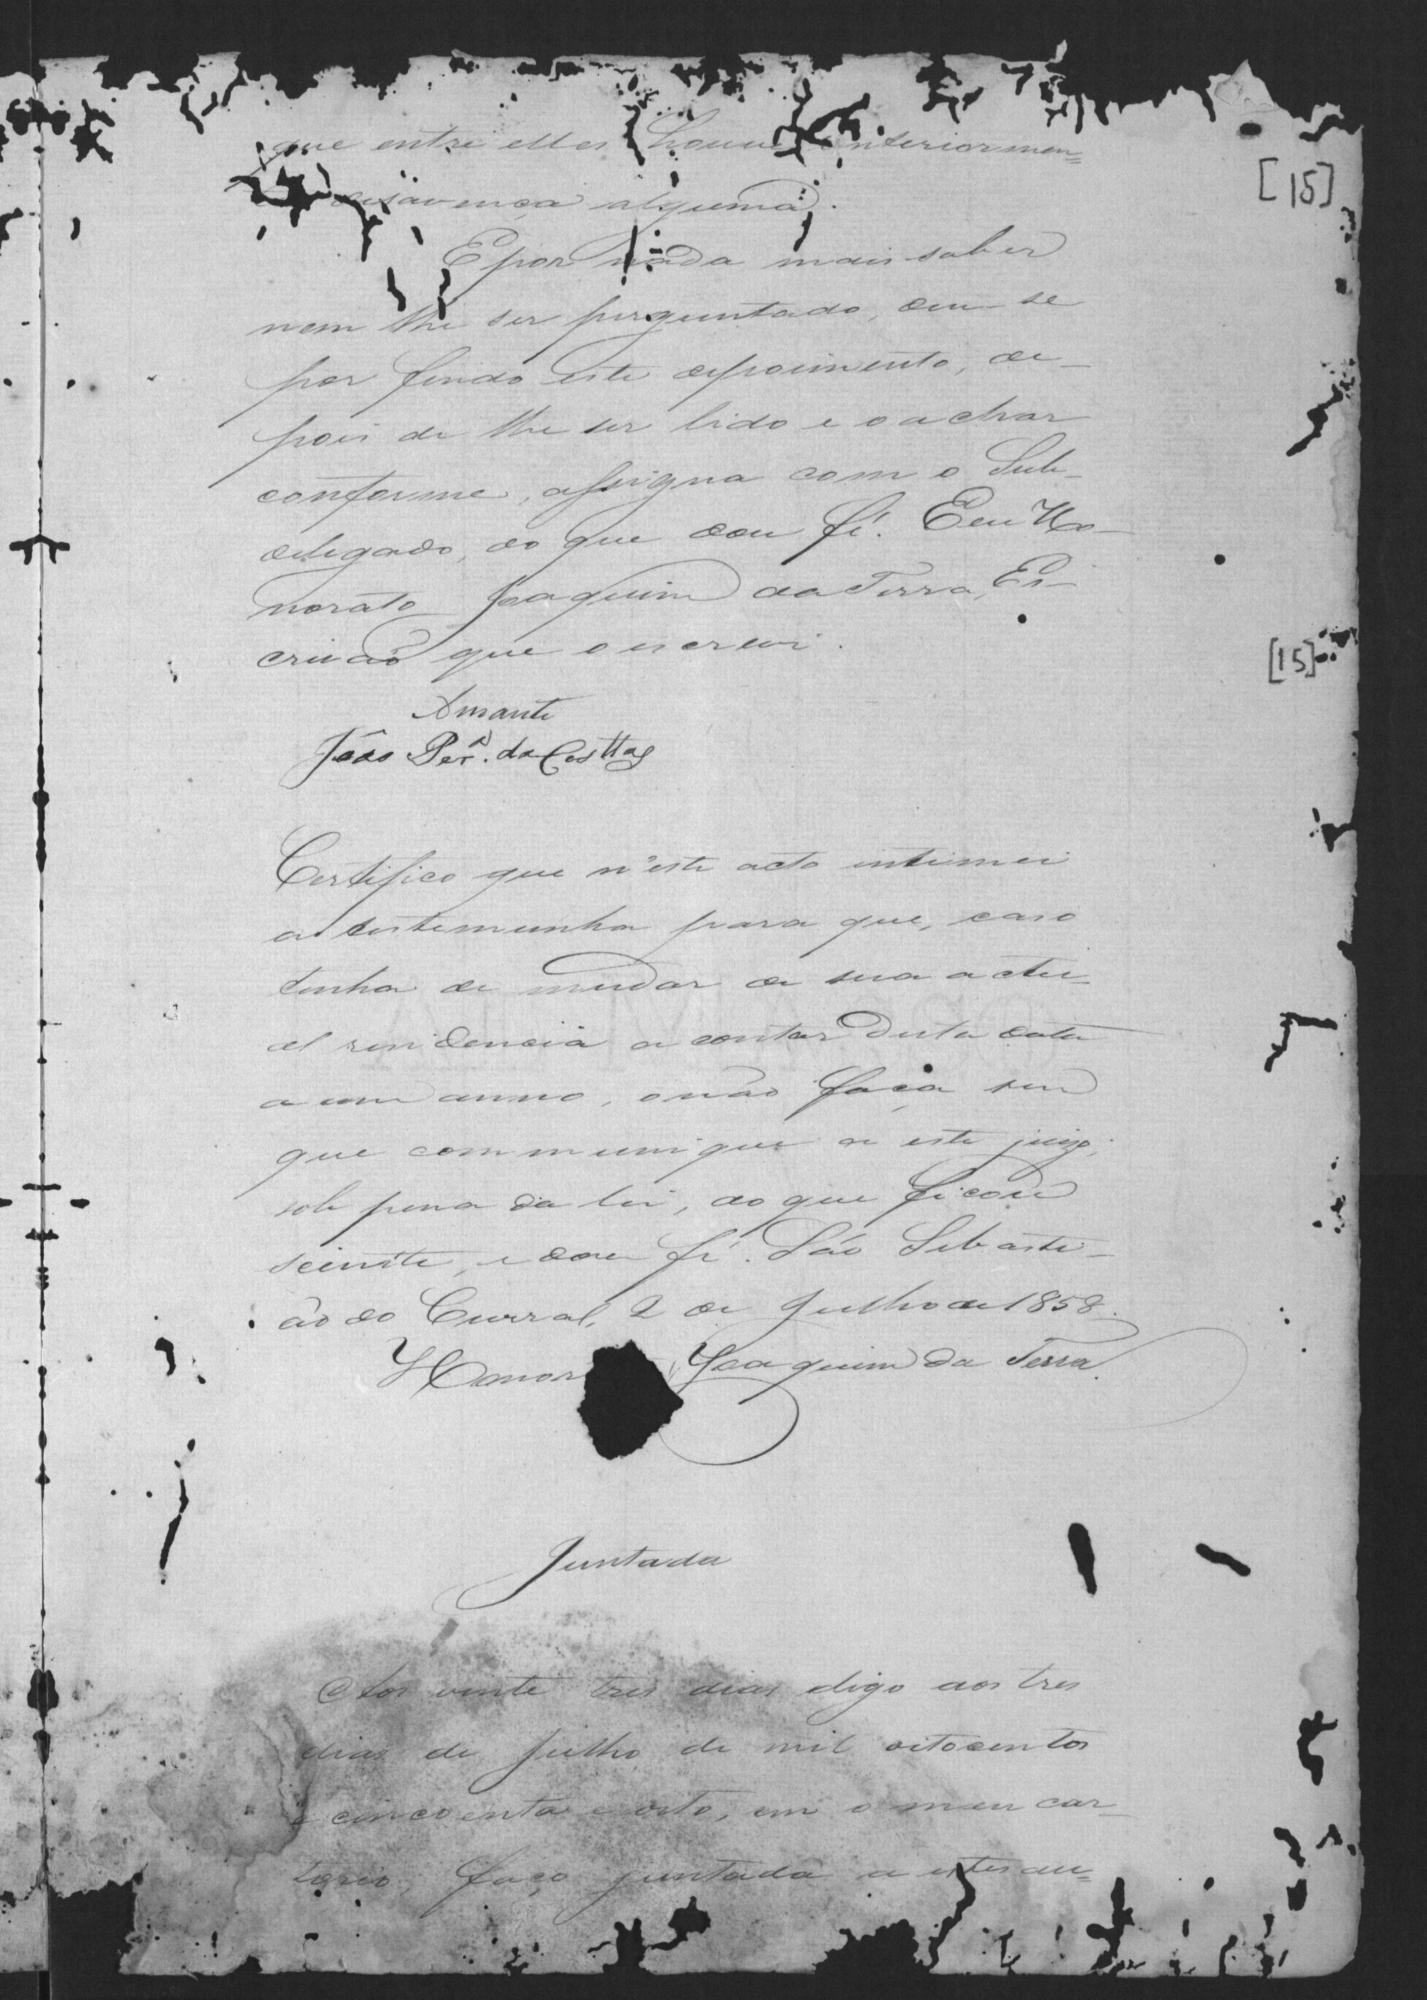 que entre elles houve anteriormen=
desavença alguma.
E por nada mais saber
nem lhe ser perguntado, deu-se
por findo este depoimento, de-
pois de lhe ser lido e o achar
conforme, assigna com o Sub-
delegado, do que dou fé. E eu Ho-
norato Joaquim da Terra, Es-
crivão que o escrevi.
Amante
João Per.ª da Costta
[15]
[15]
Certifico que n'este acto intimei
a testemunha para que, caso
tenha de mudar de sua actu-
al residencia a contar desta data
a um anno, o não faça sem
que communique a este juizo,
sob pena da lei, do que ficou
sciente, e dou fé. São Sebasti-
ão do Curral, 2 de Julho de 1858.
Honor Joaquim da Terra.
Juntada
Aos vinte tres dias digo aos tres
dias de Julho de mil oitocentos
e cincoenta e oito, em o meu car-
torio, faço juntada a estes au=